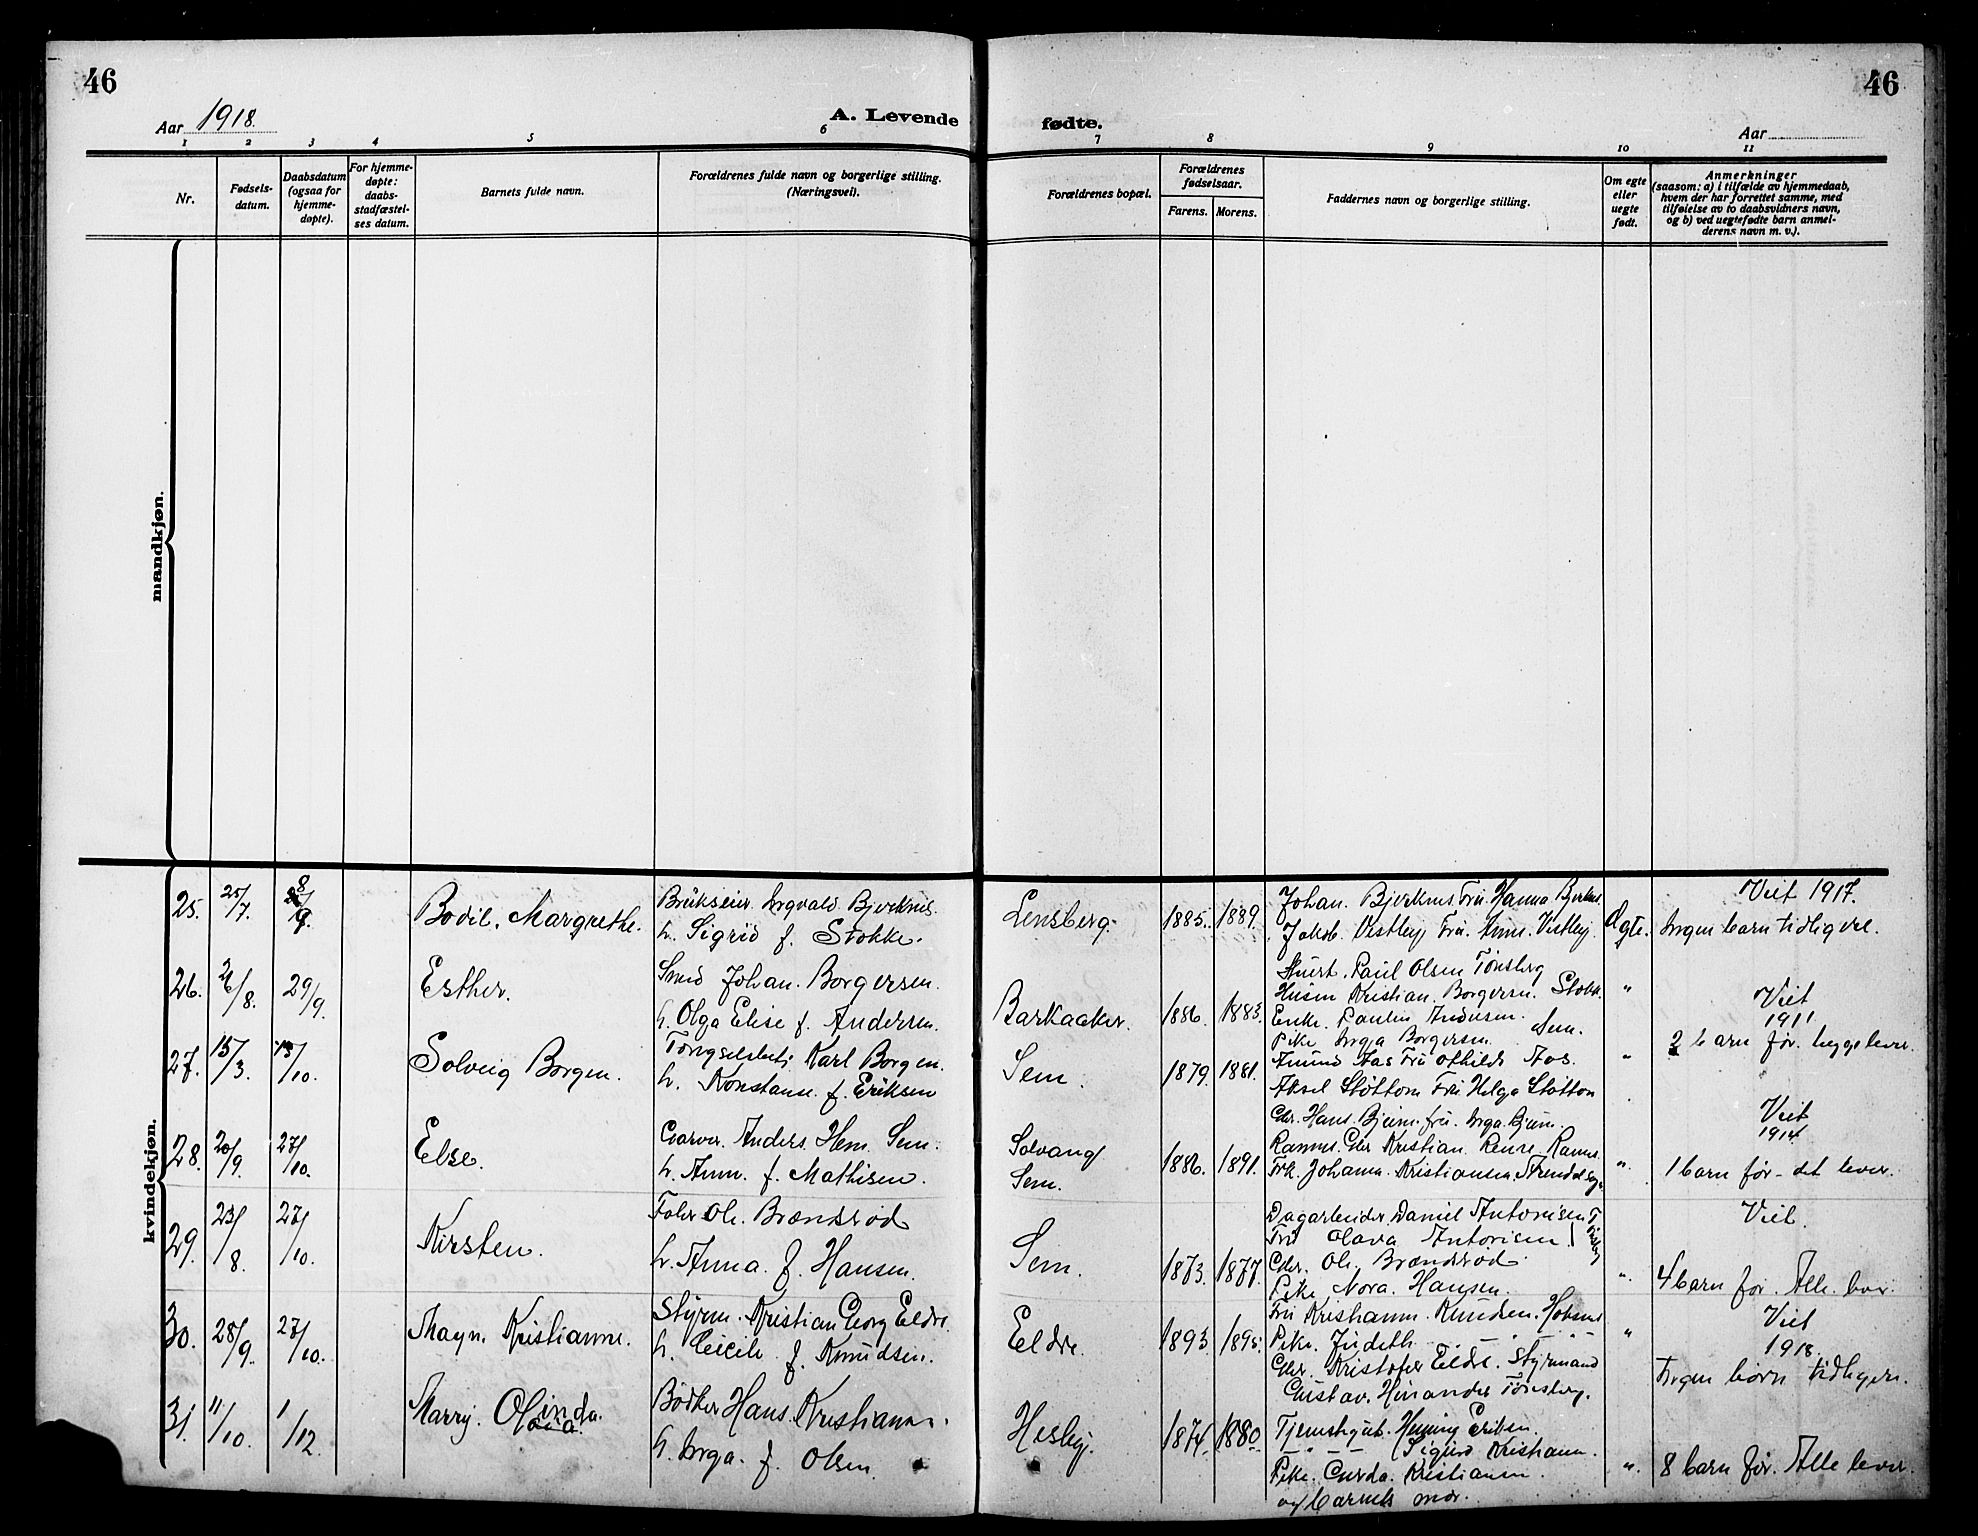 46
46
Aar 1918.
A. Levende fødte.
Aar
1 2 3 4 5 6 7 8 9 10 11
Nr.
Fødsels-
datum.
Daabsdatum
(ogsaa for
hjemme-
døpte).
For hjemme-
døpte:
daabs-
stadfæstel-
ses datum.
Barnets fulde navn.
Forældrenes fulde navn og borgerlige stilling.
(Næringsvei).
Forældrenes bopæl.
Forældrenes
fødselsaar.
Farens. Morens.
Faddernes navn og borgerlige stilling.
Om egte
eller
uegte
født.
Anmerkninger
(saasom: a) i tilfælde av hjemmedaab,
hvem der har forrettet samme, med
tilføielse av to daabsvidners navn,
og b) ved uegtefødte barn anmel-
derens navn m. v.).
mandkjøn.
kvindekjøn.
25. 25/7. 8/9.
Bodil. Margrethe.
Brukseier Ingvald Bjerknes.
h. Sigrid f. Stokke.
Lensberg.
1885. 1889.
Johan. Bjerknes Fru. Hanna Bjerknes
Jakob. Vestby, Fru. Anne. Vestby.
Ægte.
Viet 1917.
Ingen barn tidligere.
26. 26/8. 29/9.
Esther.
Smed Johan. Borgersen.
h. Olga Elise f. Andersen.
Barkaaker.
1886. 1883.
Paul Olsen Tønsberg
Kristian. Borgersen. Stokke.
Enke. Andersen.
Pike Inga Borgersen. Sem.
"
Viet
1911
2 barn før. begge lever.
27. 15/3. 13/10.
Solveig Borgen.
Karl Borgen.
h. Konstanse. f. Eriksen
Sem.
1879. 1881.
Amund Aas Fru Othilde Aas.
Aksel Støttom Fru Helga Støttom
"
28. 20/9. 27/10.
Else.
Garver. Anders. Hem. Sem.
h. Anna. f. Mathisen.
Solvang
Sem.
1886. 1891.
Gdr. Hans. Bjerum. fru. Inga. Bjerum.
Ramnes. Gdr Kristian. Ramnes.
Frk. Johanna. Kristiansen.
"
Viet
1914
1 barn før - det lever.
29. 23/8. 27/10.
Kirsten.
Ole. Brændsrød
h. Anna. f. Hansen.
Sem.
1873. 1877.
Dagarbeider. Daniel Antonisen
Fru Olava Antonisen
Gdr. Ole. Brændsrød
Pike Nora. Hansen.
"
Viet.
4 barn før. Alle. lever.
30. 28/9. 27/10.
Kristianne.
Styrm. Kristian Georg Eldre.
h. Cecile f. Knudsen.
Eldre.
1893. 1895.
Fru Kristianne Knudsen.
Pike. Judith
Gdr. Kristofer Eldre. Styrmand
Gustav. Tønsberg.
"
Viet
1918.
Ingen børn tidligere.
31. 11/10. 1/12.
Marry. Olinda.
Bødker Hans. Kristiansen.
h. Inga. f. Olsen.
Hesby.
1874. 1880.
Tjenestegut. Henning Eriksen.
— " — Sigurd Kristiansen.
Pike. Gerda. Kristiansen.
og barnets mor.
"
8 barn før. Alle lever.